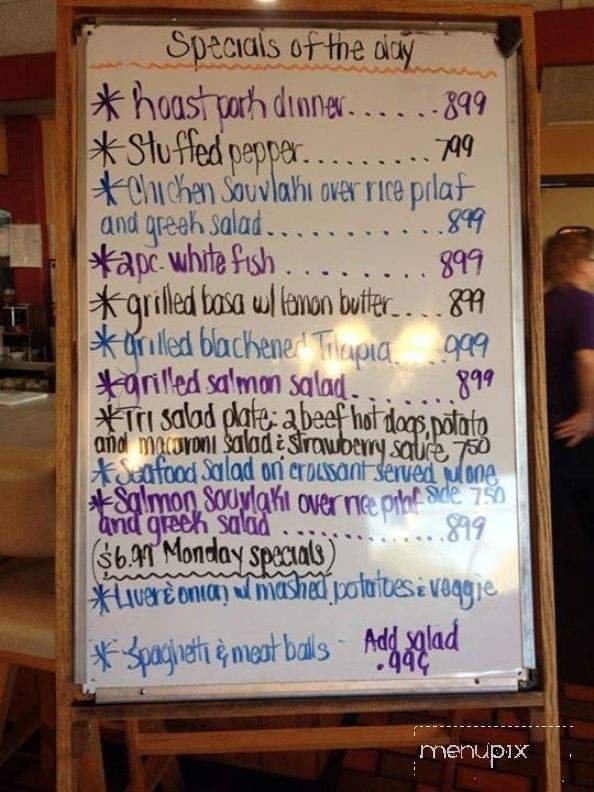 Specials of the day
* Roast pork dinner...... 899
* Stuffed pepper......... 799
* Chicken Souvlaki over rice pilaf
and greek salad........... 899
* 2pc. white fish ........ 899
* grilled basa w/ lemon butter.... 899
* grilled blackened Tilapia.... 999
* grilled salmon salad....... 899
* Tri salad plate: 2 beef hot dogs, potato
and macaroni salad & strawberry sauce 750
* Seafood Salad on croissant served w/ one
side 750
* Salmon Souvlaki over rice pilaf
and greek salad ............. 899
($6.99 Monday specials)
* Liver & onion w/ mashed potatoes & veggie
* Spaghetti & meat balls - Add salad
.99¢
menupix